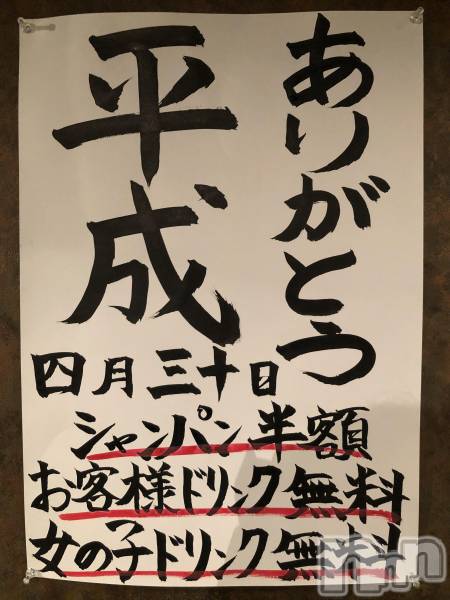 ありがとう
平成
四月三十日
シャンパン半額
お客様ドリンク無料
女の子ドリンク無料